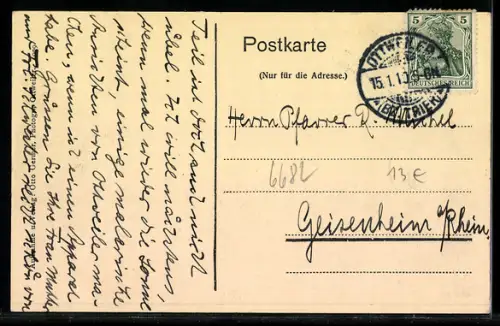 Teil ist doch auch nicht
übel. Ich will nächstens,
wenn mal wieder die Sonne
scheint, einige malerische
Ansichten von Ottweiler ma-
chen, wenn ich einen Apparat
habe. Grüssen Sie Ihre Frau Mutter
Postkarte
(Nur für die Adresse.)
5 5
DEUTSCHES REICH
OTTWEILER
15.1.1
(BZ. TRIER)
Herrn Pfarrer R.
6682
13 €
Geisenheim a/Rhein.